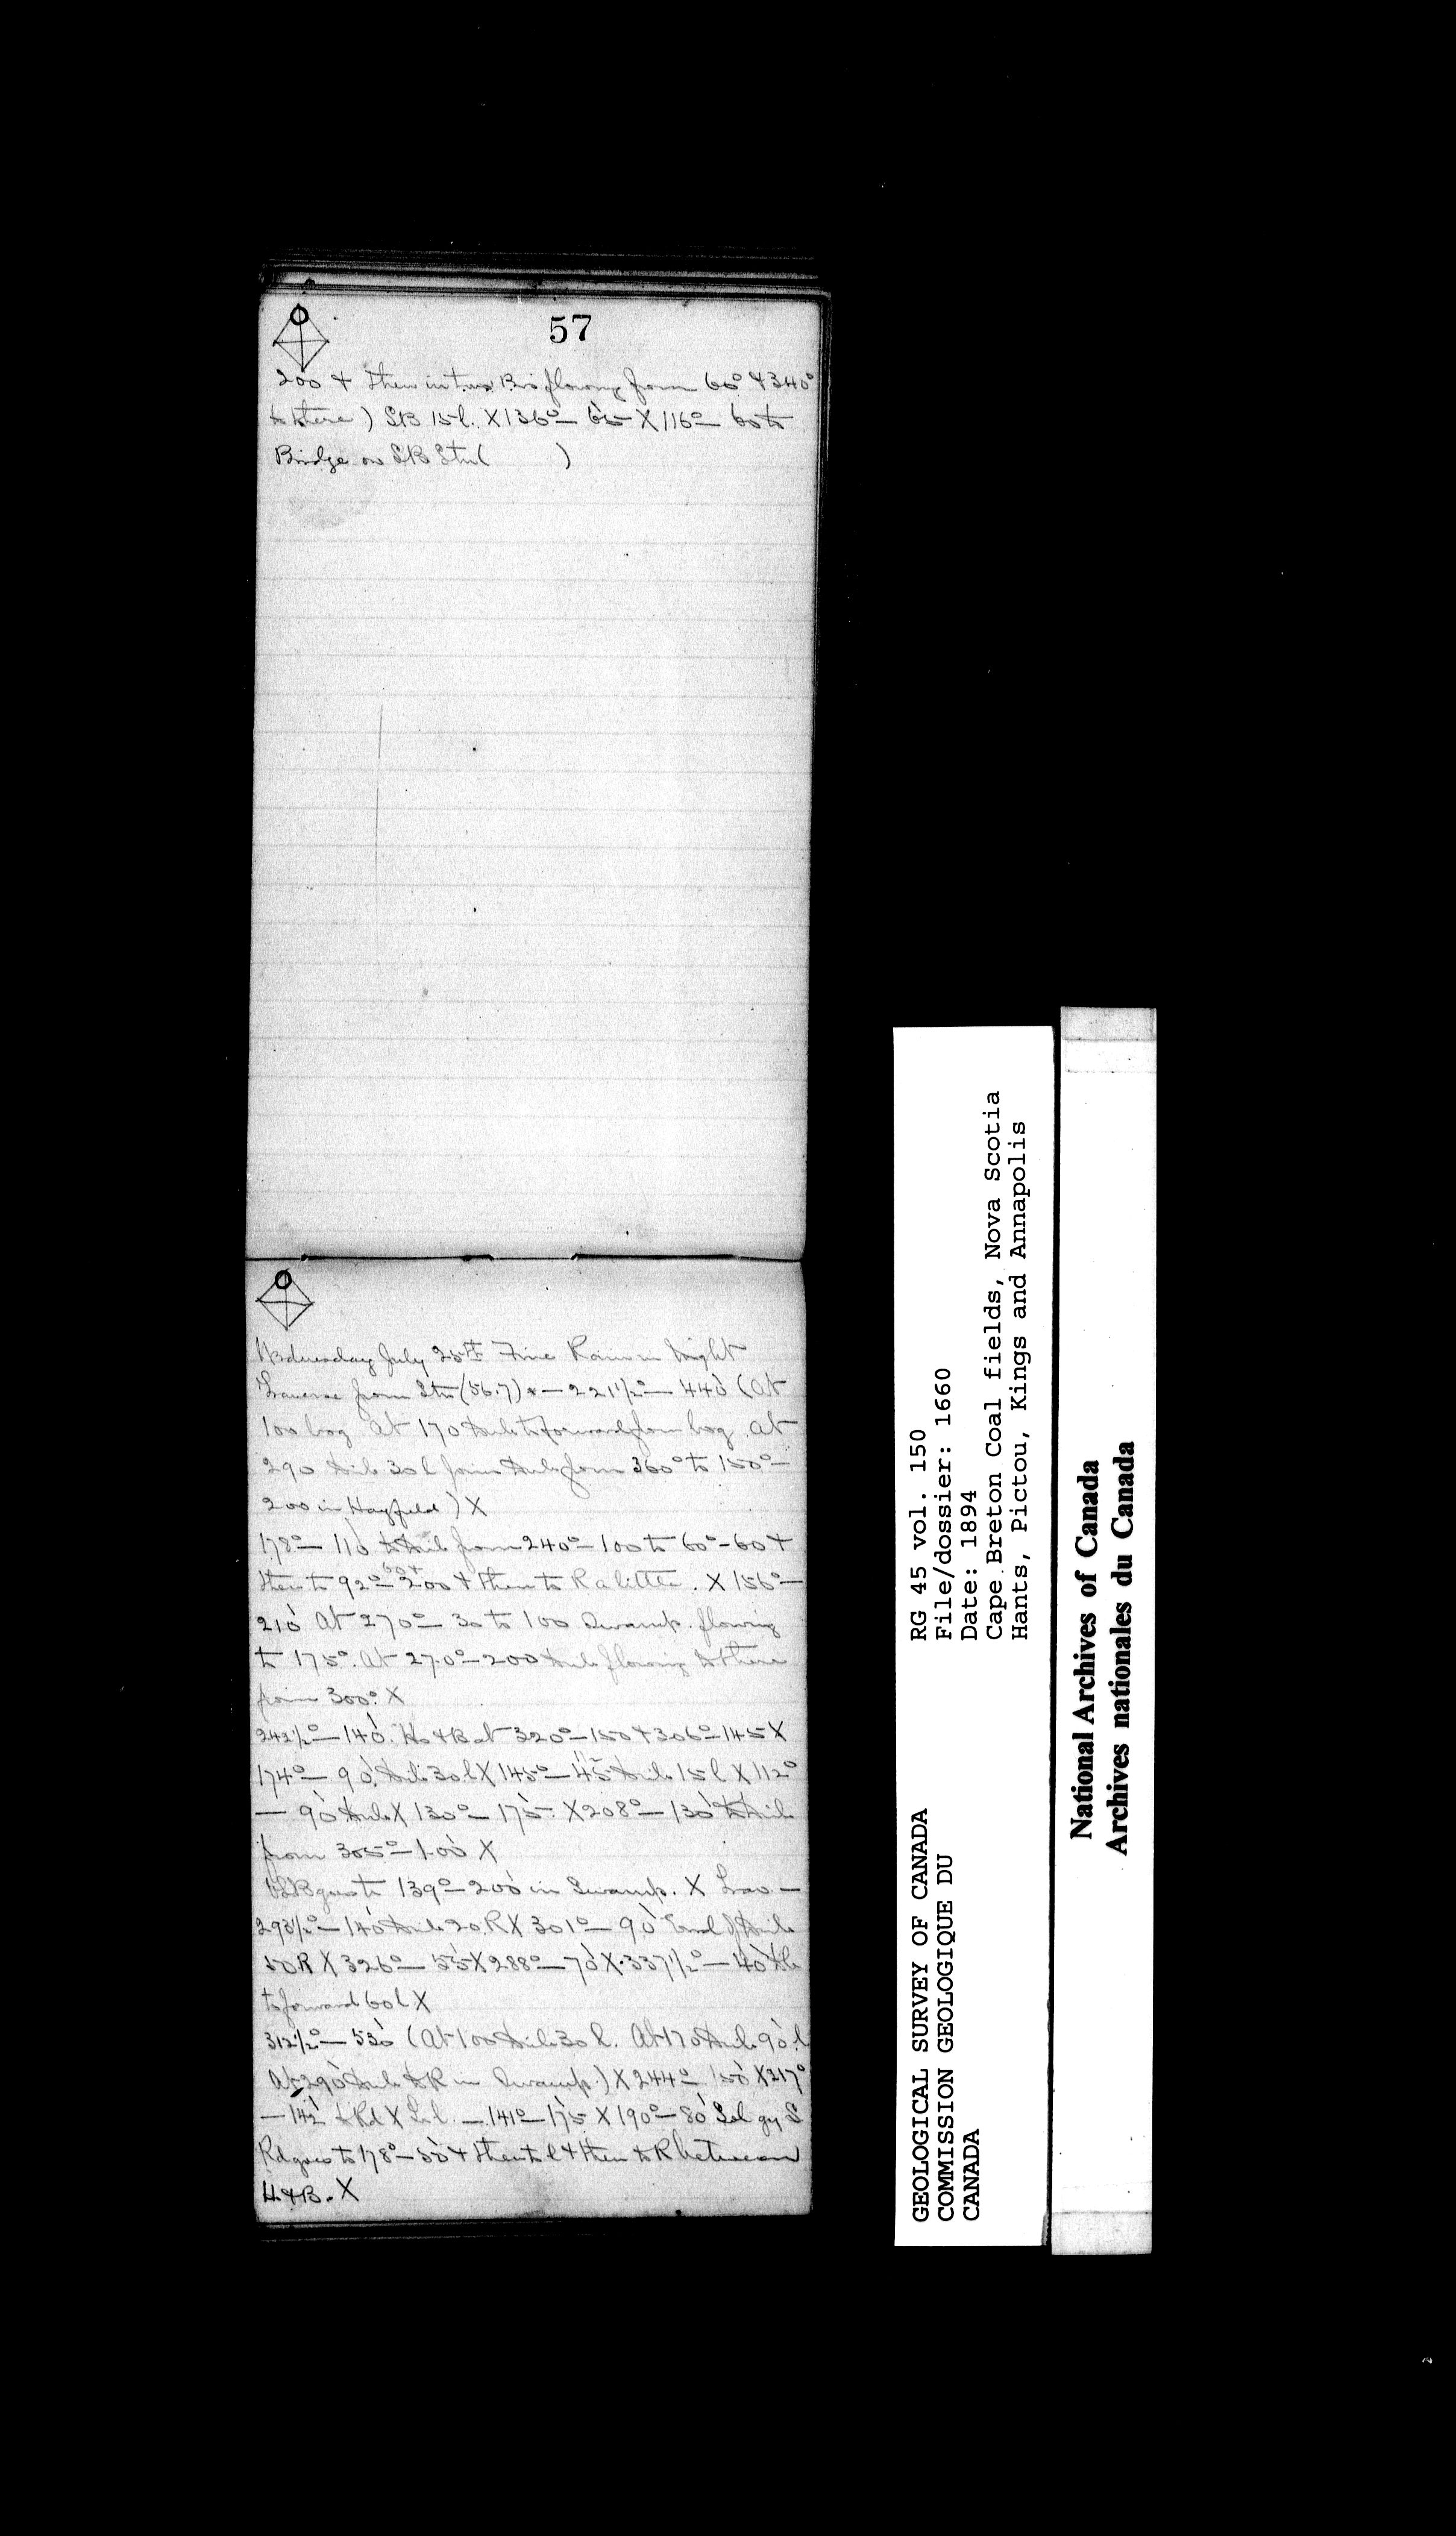 57
200 & then in two Brs flowing from 60° & 340°
to there) SB 15 l. X 136° — 65 X 116° — 60 to
Bridge on SB Stn (          )
Wednesday July 25th Fine Rain in Night
Traverse from Stn (56.7) * — 221½° — 440 (at
100 bog at 170 to forward from bog at
290 30 l joins from 360° to 150° —
200 in Hayfield) X
178° — 110 to from 240° — 100 to 60° - 60 &
then to 92° — 200 & then to R a little. X 156° —
210 at 270° — 30 to 100 Swamp. flowing
to 175°. At 270° — 200 flowing to there
from 300°. X
242½° — 140. Ho & B at 320° — 150 & 306° — 145 X
174° — 90. 30 l X 145° — 45 15 l X 112°
— 90 X 130° — 175. X 208° — 130 to
from 305° — 100 X
goes to 139° — 200 in Swamp. X
293½° — 140 20 R X 301° — 90 End of
50 R X 326° — 55 X 288° — 70 X 337½° — 40
to forward 60 l X
312½° — 530 (At 100 30 l. At 170 90 l
At 290 to R in Swamp.) X 244° — 150 X 217°
— 142 to Rd X — 141° — 175 X 190° — 80 gy S
Rd goes to 178° — 50 & then to l & then to R between
H. & B. X
RG 45 vol. 150
File/dossier: 1660
Date: 1894
Cape Breton Coal fields, Nova Scotia
Hants, Pictou, Kings and Annapolis
GEOLOGICAL SURVEY OF CANADA
COMMISSION GEOLOGIQUE DU
CANADA
National Archives of Canada
Archives nationales du Canada